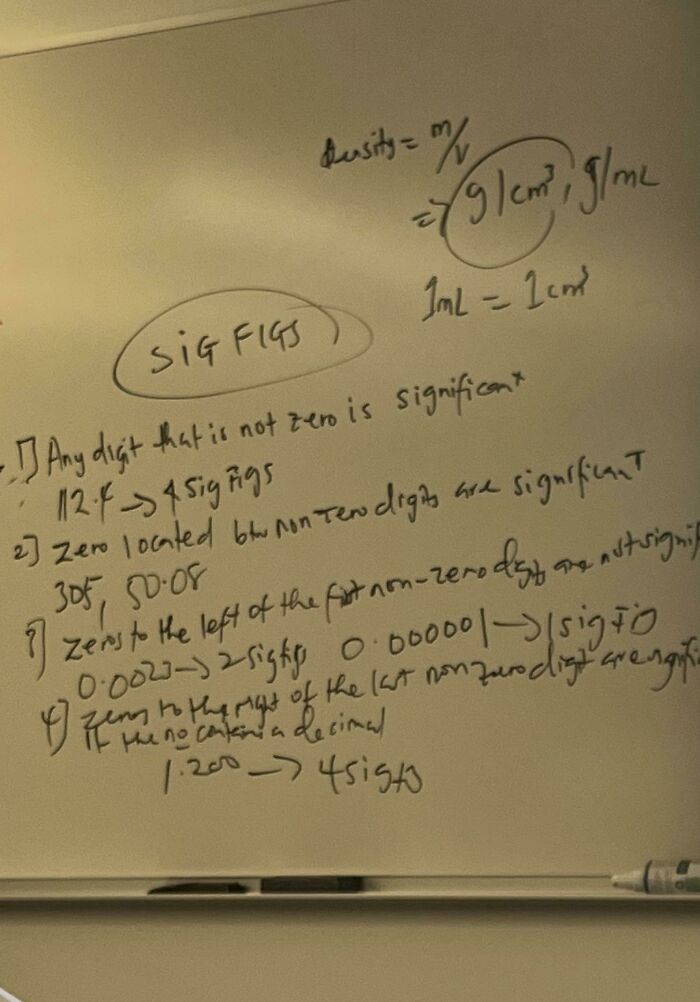 Density = m/v
=> g/cm³, g/mL
1mL = 1cm³
SIG FIGS
1] Any digit that is not zero is significant
112.4 → 4 sig figs
2] Zero located btw non zero digits are significant
305, 50.08
3] Zeros to the left of the first non-zero digits are not signifi
0.0023 → 2 sigfigs 0.000001 → 1 sig FIG
4] Zeros to the right of the last non zero digit are signifi
If the no contains a decimal
1.200 → 4 sigfigs